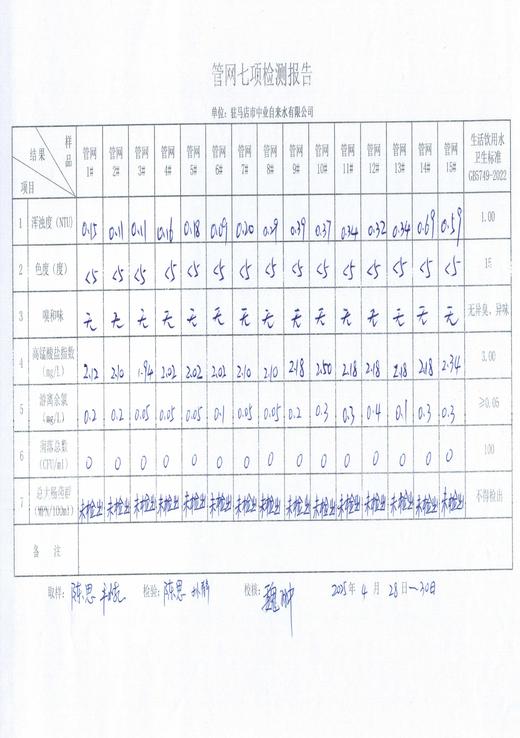 管网七项检测报告
单位：驻马店市中业自来水有限公司
结果 样品 项目 管网1# 管网2# 管网3# 管网4# 管网5# 管网6# 管网7# 管网8# 管网9# 管网10# 管网11# 管网12# 管网13# 管网14# 管网15# 生活饮用水卫生标准GB5749-2022
1 浑浊度（NTU） 0.15 0.11 0.11 0.16 0.18 0.09 0.20 0.29 0.39 0.37 0.34 0.32 0.34 0.69 0.59 1.00
2 色度（度） <5 <5 <5 <5 <5 <5 <5 <5 <5 <5 <5 <5 <5 <5 <5 15
3 嗅和味 无 无 无 无 无 无 无 无 无 无 无 无 无 无 无 无异臭、异味
4 高锰酸盐指数（mg/L） 2.12 2.10 1.94 2.02 2.02 2.02 2.10 2.10 2.18 2.50 2.18 2.18 2.18 2.18 2.34 3.00
5 游离余氯（mg/L） 0.2 0.2 0.05 0.05 0.05 0.1 0.05 0.05 0.2 0.3 0.3 0.4 0.1 0.3 0.3 ≥0.05
6 菌落总数（CFU/ml） 0 0 0 0 0 0 0 0 0 0 0 0 0 0 0 100
7 总大肠菌群（MPN/100ml） 未检出 未检出 未检出 未检出 未检出 未检出 未检出 未检出 未检出 未检出 未检出 未检出 未检出 未检出 未检出 不得检出
备 注
取样：陈思 检验：陈思 孙静 校核：魏帅 2025年4月28日—30日